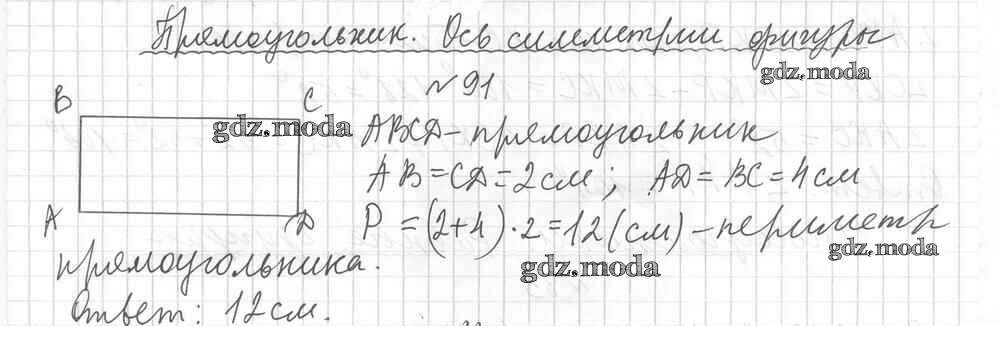 Прямоугольник. Ось симметрии фигуры
gdz.moda
№91
B C
gdz.moda
ABCD - прямоугольник
AB = CD = 2 см; AD = BC = 4 см
A D
P = (2+4)·2 = 12 (см) - периметр
gdz.moda
прямоугольника.
gdz.moda
Ответ: 12 см.